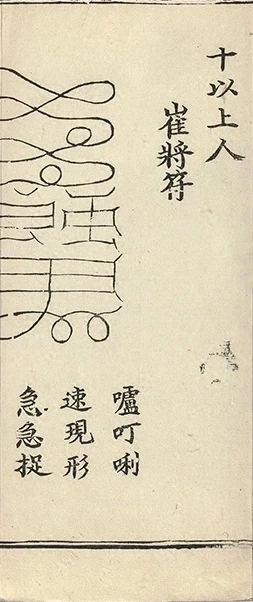 十以上人
崔將符
嚧叮唎
速現形
急急捉